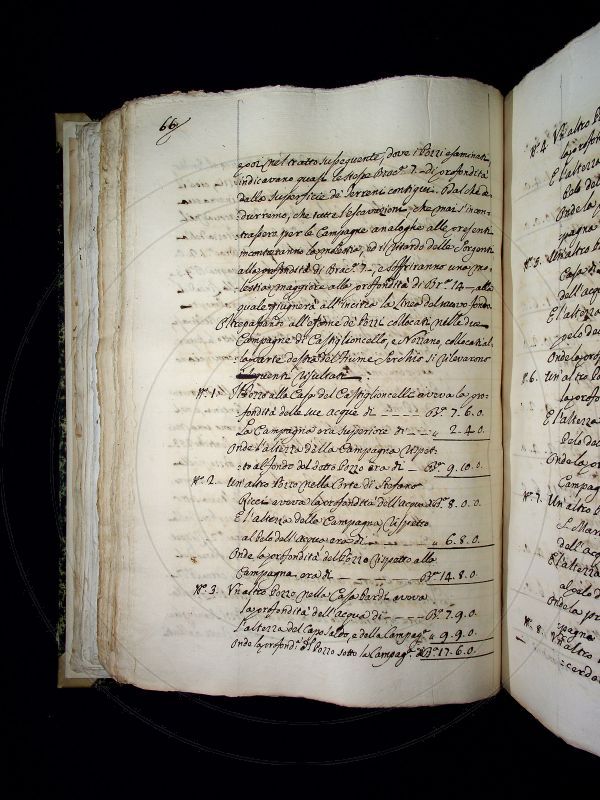 66
e poi nel tratto susseguente, dove i Pozzi esaminati
indicavano quasi le stesse Brac.ª 7. di profondità
dalla superficie de Terreni contigui. Dal che de-
durremo, che tutte l'escavazioni, che mai s'incon-
trassero per le Campagne analoghe alle presenti
incontreranno la molestia, ed il ritardo delle Sorgenti
alla profondità di Brac.ª 7., e soffriranno una mo-
lestia maggiore alla profondità di Br.ª 14., alla
quale giugnerà all'incirca la linea del nuovo fondo.
Oltrepassando all'esame de Pozzi collocati nelle due
Campagne di Castiglioncello, e Nozzano, collocati al-
la parte destra del Fiume Serchio si rilevarono
seguenti risultati:
N.º 1. Il Pozzo alla Casa del Castiglioncelli aveva la pro-
fondità delle sue Acque di - - - - B.ª 7. 6. 0.
La Campagna era superiore di - - „ 2. 4. 0.
Onde l'altezza della Campagna rispet-
to al fondo del detto Pozzo era di - B.ª 9. 10. 0.
N.º 2. Un'altro Pozzo nella Corte di Stefano
Ricci aveva la profondità dell'acqua B.ª 8. 0. 0.
E l'altezza della Campagna rispetto
al Pelo dell'acqua era di - - - - „ 6. 8. 0.
Onde la profondità del Pozzo rispetto alla
Campagna era di - - - - B.ª 14. 8. 0.
N.º 3. Un'altro Pozzo nella Casa Pardi aveva
la profondità dell'Acqua di - - - - B.ª 7. 9. 0.
L'altezza del Caposaldo, e della Campag.ª „ 9. 9. 0.
Onde la profond.à del Pozzo sotto la Campag.ª di B.ª 17. 6. 0.
N.º 4. Un'altro
la profon
E l'altezza
Pelo del
Onde la p
pagna
N.º 5. Un'altro
Casa di
dell'acq
E l'altezza
pelo dell
Onde la
N.º 6. Un'altro P
la profon
E l'altezza
Pelo del
Onde la p
Campag
N.º 7. Un'altro
S. Mar
dell'Acq
E l'altezza
al pelo d
Onde la pr
pagna
N.º 8. Un'altro